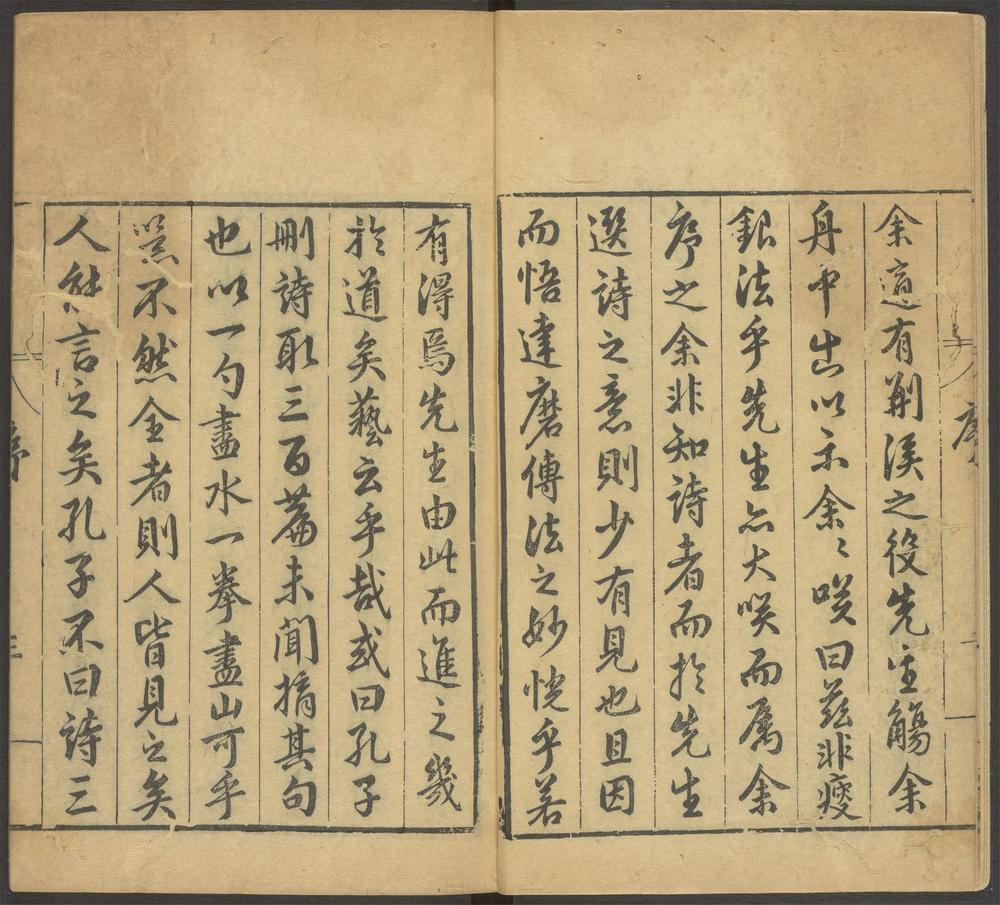 序
余適有荆溪之役先生觴余
舟中出以示余〻咲曰茲非瘦
銀法乎先生亦大咲而属余
序之余非知詩者而於先生
選詩之意則少有見也且因
而悟達磨傳法之妙恍乎若
有得焉先生由此而進之幾
於道矣藝云乎哉或曰孔子
刪詩取三百篇未聞摘其句
也以一勺盡水一拳盡山可乎
不然余者則人皆見之矣
人能言之矣孔子不曰詩三
序
三